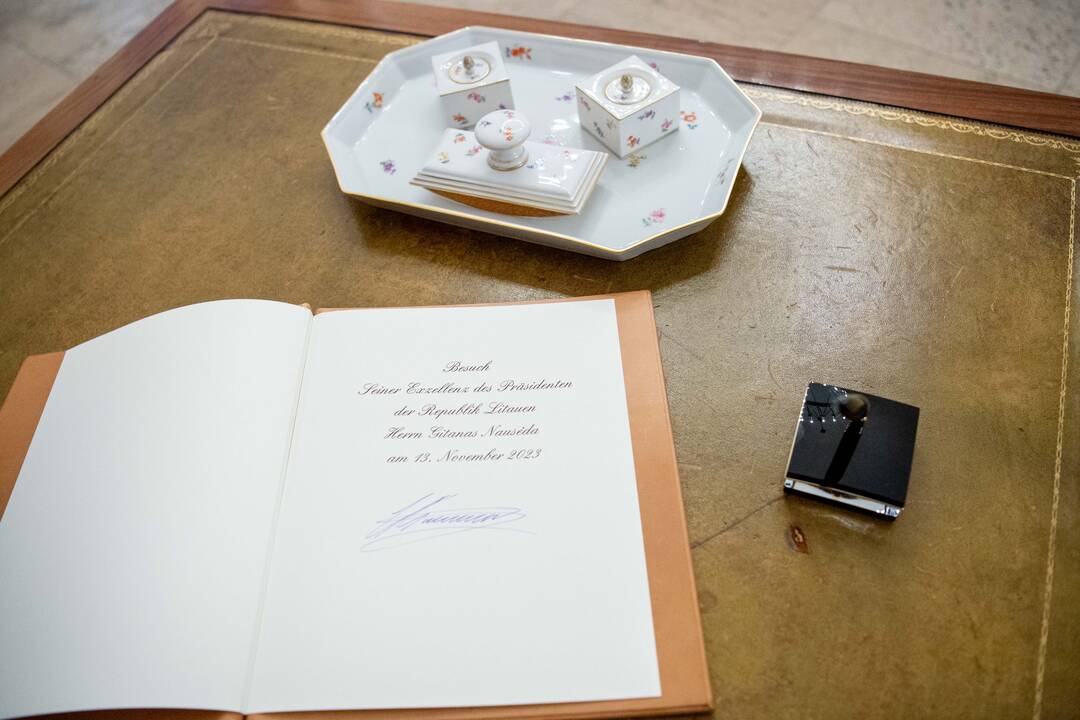 Besuch
Seiner Exzellenz des Präsidenten
der Republik Litauen
Herrn Gitanas Nausėda
am 13. November 2023